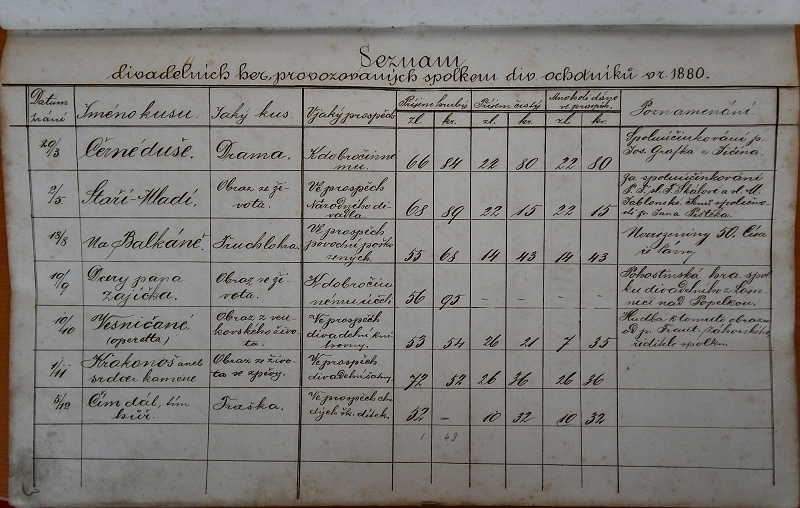 Seznam
divadelních her, provozovaných spolkem div. ochotníků v r. 1880.
Datum hraní | Jméno kusu. | Jaký kus. | V jaký prospěch | Příjem hrubý zl. kr. | Příjem čistý zl. kr. | Mnoholi dáno ve prospěch zl. kr. | Poznamenání
29/3 | Černé duše. | Drama. | K dobročinnému. | 66 | 84 | 22 | 80 | 22 | 80 | Spoluúčinkování p. Jos. Grafka z Jičína.
2/5 | Staří-Mladí. | Obraz ze života. | Ve prospěch Národního divadla. | 68 | 89 | 22 | 15 | 22 | 15 | Za spoluúčinkování
18/8 | Na Balkáně. | Truchlohra. | Ve prospěch původní poškozených. | 55 | 68 | 14 | 43 | 14 | 43 | Narozeniny 50. Císaře Pána
19/9 | Dcery pana zajíčka. | Obraz ze života. | K dobročinnému účeli | 56 | 95 | – | – | – | – | Pohostinská hra spolku divadelního z Lomnice nad Popelkou.
10/10 | Vesničané. (operetta) | Obraz z venkovského života. | Ve prospěch divadelní knihovny. | 53 | 54 | 26 | 21 | 7 | 35 | Hudba k tomuto obrazu od p. Fraut. Záhorského, ředitele spolku.
1/11 | Krakonoš aneb srdce z kamene | Obraz ze života se zpěvy. | Ve prospěch divadelní šatny. | 72 | 52 | 26 | 36 | 26 | 36
5/12 | Čím dál, tím hůř. | Fraška. | Ve prospěch chudých šk. dítek. | 52 | – | 10 | 32 | 10 | 32